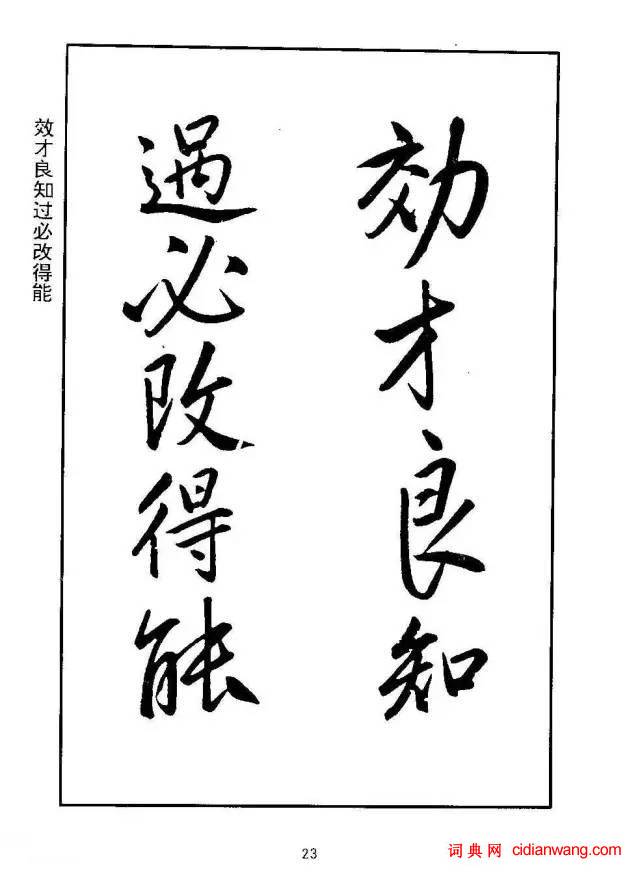 効才良知
過必改得能
效才良知过必改得能
23
词典网 cidianwang.com